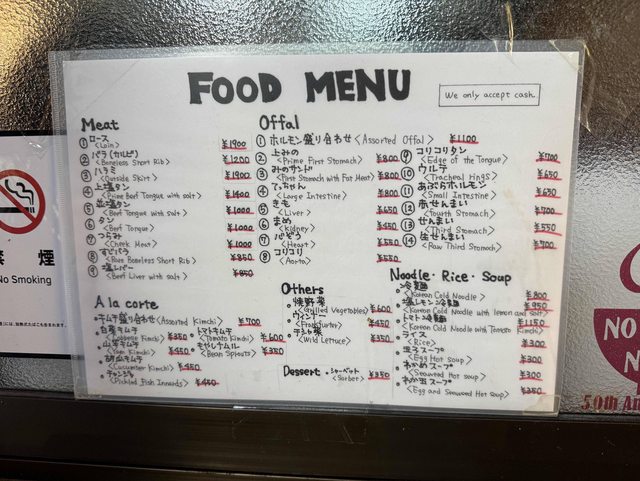 FOOD MENU
We only accept cash.
Meat
① ロース
<Loin> ¥1900
② バラ(カルビ)
<Boneless Short Rib> ¥1200
③ ハラミ
<Outside Skirt> ¥1900
④ 上塩タン
<Prime Beef Tongue with salt> ¥1400
⑤ 並塩タン
<Beef Tongue with salt> ¥1000
⑥ タン
<Beef Tongue> ¥1000
⑦ つらみ
<Cheek Meat> ¥1000
⑧
<Raw Boneless Short Rib> ¥850
⑨ 塩レバー
<Beef Liver with salt> ¥850
Offal
① ホルモン盛り合わせ <Assorted Offal> ¥1100
② 上みの
<Prime First Stomach> ¥800
③ みのサンド
<First Stomach with Fat Meat> ¥800
④ てっちゃん
<Large Intestine> ¥800
⑤ きも
<Liver> ¥650
⑥ まめ
<Kidney> ¥450
⑦
<Heart> ¥550
⑧ コリコリ
<Aorta> ¥550
⑨ コリコリタン
<Edge of the Tongue> ¥700
⑩ ウルテ
<Tracheal Rings> ¥650
⑪ あぶらホルモン
<Small Intestine> ¥650
⑫ 赤せんまい
<fourth Stomach> ¥700
⑬ せんまい
<Third Stomach> ¥550
⑭ 生せんまい
<Raw Third Stomach> ¥700
A la corte
・キムチ盛り合わせ <Assorted Kimchi> ¥700
・白菜キムチ
<Cabbage Kimchi> ¥350
・トマトキムチ
<Tomato Kimchi> ¥600
・山芋キムチ
<Yam Kimchi> ¥450
・モヤシナムル
<Bean Sprouts> ¥350
・胡瓜キムチ
<Cucumber Kimchi> ¥450
・チャンジャ
<Pickled Fish Innards> ¥450
Others
・焼野菜
<Grilled Vegetables> ¥600
・ウィンナー
<Frankfurter> ¥450
・チシャ菜
<Wild Lettuce> ¥350
Dessert ・シャーベット
<Sorbet> ¥350
Noodle・Rice・Soup
・冷麺
<Korean Cold Noodle> ¥800
・塩レモン冷麺
<Korean Cold Noodle with lemon and salt> ¥950
・トマト冷麺
<Korean Cold Noodle with Tomato Kimchi> ¥1150
・ライス
<Rice> ¥300
・玉子スープ
<Egg Hot Soup> ¥300
・わかめスープ
<Seaweed Hot soup> ¥300
・わか玉スープ
<Egg and Seaweed Hot Soup> ¥350
禁煙
No Smoking
NO
N
50th An